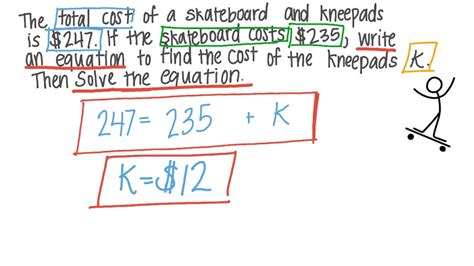 The total cost of a skateboard and kneepads
is $247. If the skateboard costs $235, write
an equation to find the cost of the kneepads K.
Then Solve the equation.
247 = 235 + K
K = $12